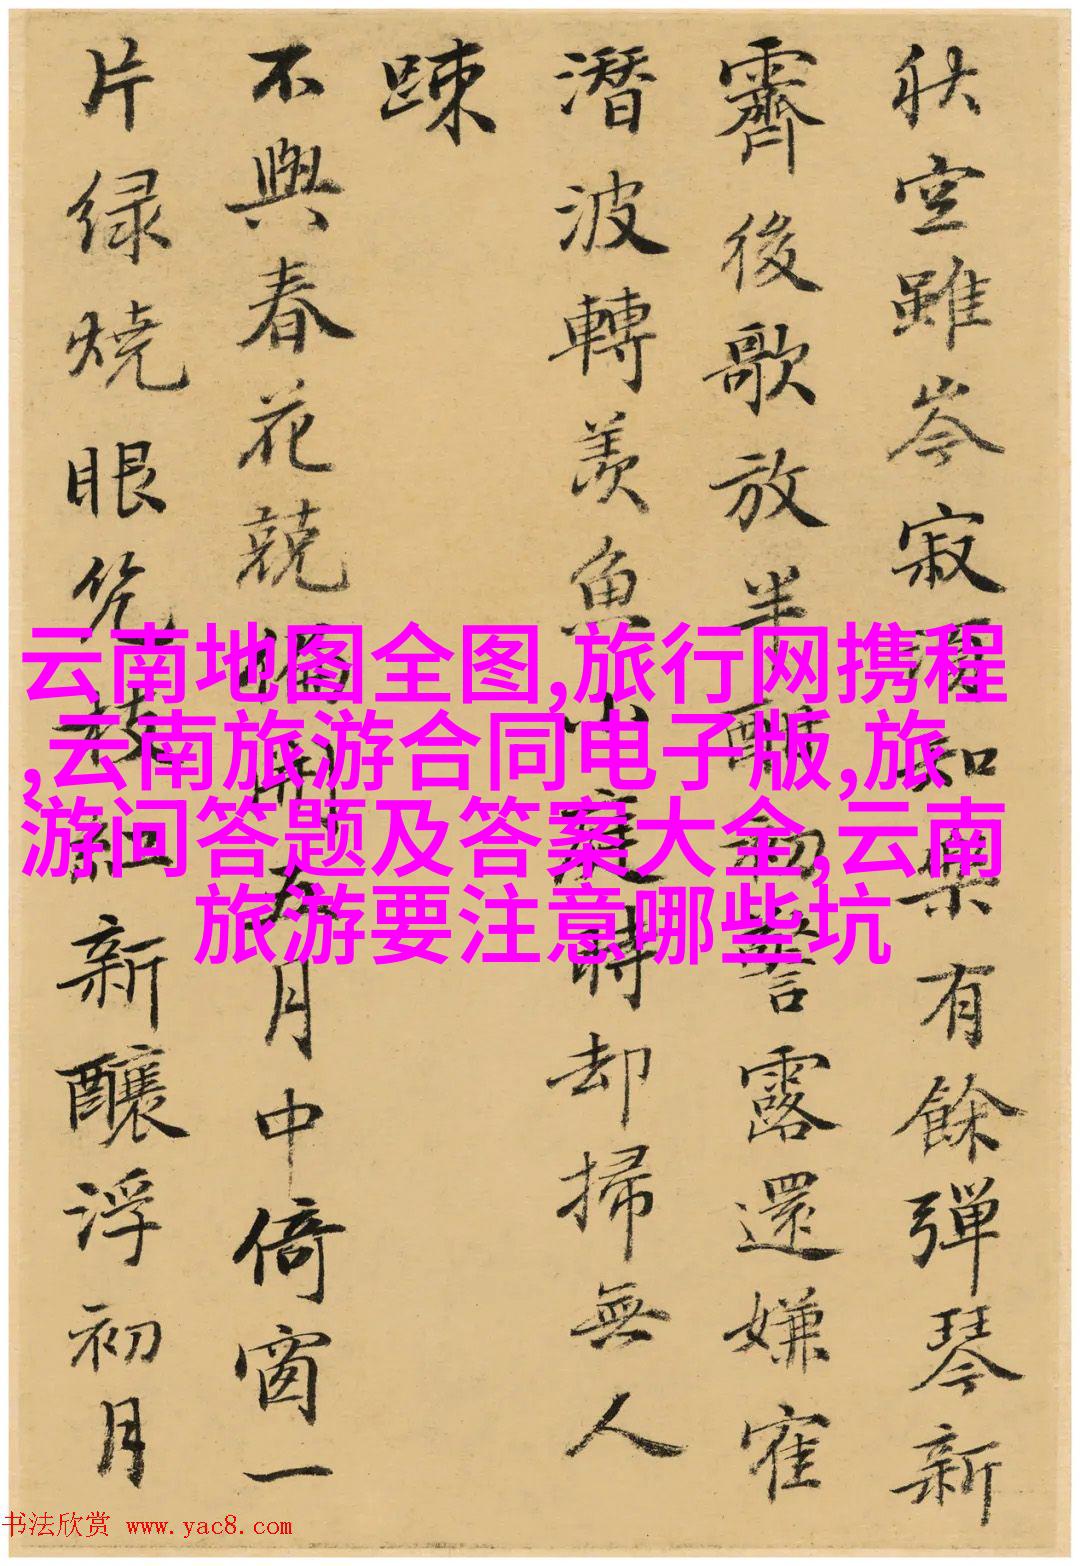 秋空雖岑寂知樂有餘彈琴新
霽後歌放半酣初警露還嫌寉
潛波轉羨魚小庭時却掃無人
踈
不與春花競開五月中倚窗一
片绿燒眼枝紅新釀浮初月
云南地图全图,旅行网携程
,云南旅游合同电子版,旅
游问答题及答案大全,云南
旅游要注意哪些坑
书法欣赏 www.yac8.com